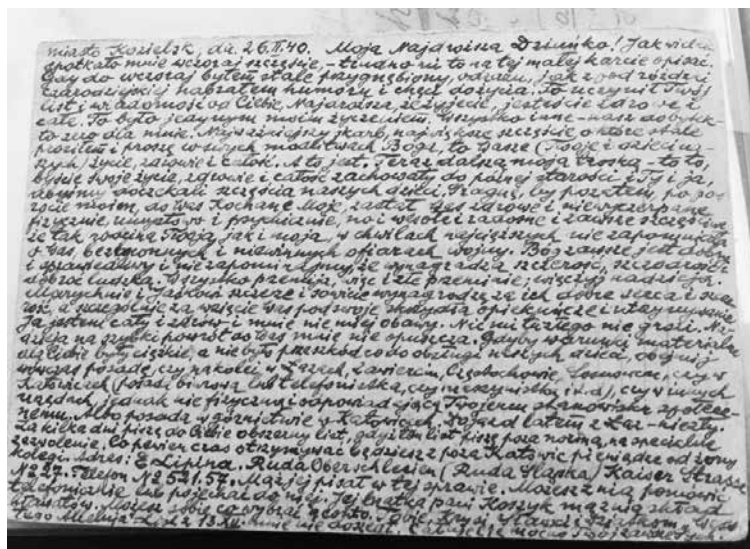 miasto Kozielsk, dn. 26.II.40. Moja Najdroższa Dziuńko! Jak wielkie
spotkało mnie wczoraj szczęście, – trudno mi to na tej małej karcie opisać.
Gdy do wczoraj byłem stale przygnębiony, odrazu, jak pod różdżki
czarodziejskiej nabrałem humoru i chęci do życia. To uczynił Twój
list i wiadomość od Ciebie, Najdroższa, że żyjecie, jesteście zdrowe i
całe. To było jedynym moim życzeniem. Wszystko inne – nasz dobytek –
to zero dla mnie. Najważniejszy skarb, największe szczęście, o które stale
prosiłem i proszę w swych modlitwach Boga, to Wasze (Twoje i dzieci na-
szych) życie, zdrowie i całość. A to jest. Teraz dalsza moja troska – to to,
byście swoje życie, zdrowie i całość zachowały do późnej starości i Ty i ja,
doczekali szczęścia naszych dzieci. Pragnę, by pozatem, po po-
wrocie moim, do Was Kochane Moje, zastał Was zdrowe i niewyczerpane
fizycznie, umysłowo i psychicznie, no i wesołe i radosne i zawsze szczęśliwe
że tak rodzina Twoja, jak i moja, w chwilach najcięższych nie zapominają
o Was, bezbronnych i niewinnych ofiarach wojny. Bóg zawsze jest dobry
i sprawiedliwy i nie zapominajmy, że wynagradza szczerość, szczodrość i
dobroć ludzką. Wszystko przemija, więc i złe przeminie; więcej nadziei.
Marychnie i Jaśkowi szczerze i sowicie wynagrodzę za ich dobre serca i
a szczególnie za wzięcie Was pod swoje skrzydła opiekuńcze i utrzymywanie.
Ja jestem cały i zdrów i o mnie nie miej obawy. Nic mi tu złego nie grozi. Na-
dzieja na szybki powrót do Was mnie nie opuszcza. Gdyby warunki materialne
dla Ciebie były ciężkie, a nie było przeszkód co do obsługi naszych dzieci, obejmij
wówczas posadę, czy na kolei w Łazach, Zawierciu, Częstochowie, Sosnowcu, czy w
Katowicach (posada biurowa lub telefonistka, czy maszynistka i t.d.), czy w innych
urzędach, jednak nie fizyczną i odpowiadającą Twojemu stanowisku społecz-
nemu. Albo posada w górnictwie w Katowicach. Dojazd latem z Łaz – niezły.
Za kilka dni piszę do Ciebie obszerny list, gdyż ten list piszę poza normą, na specjalne
zezwolenie. Co pewien czas otrzymywać będziesz z poza Katowic pieniądze od żony
kolegi. Adres: E. Lipina. Ruda Oberschlesien (Ruda Śląska) Kaiser Strasse
№ 27. Telefon № 521.57. Mąż jej pisał w tej sprawie. Możesz z nią pomówić
telefonicznie lub pojechać do niej. Jej bratka pani Koszyk ma z nią skład
Możesz sobie co wybrać
Alleluja. List z 13.XII. mnie nie doszedł.